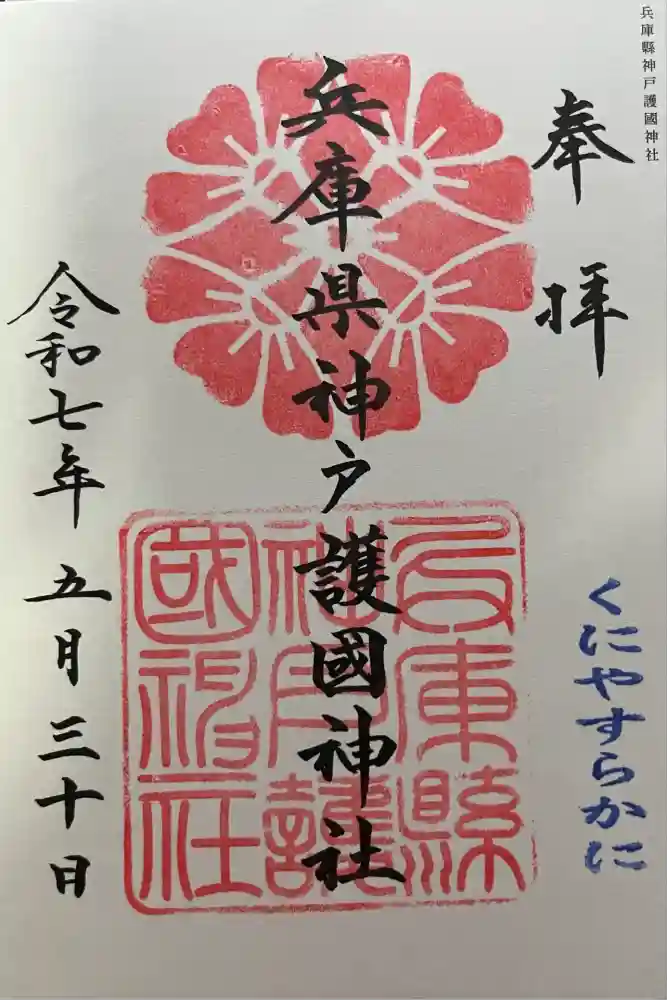 兵庫縣神戸護國神社
奉拝
くにやすらかに
兵庫県神戸護國神社
兵庫縣
神戸護
國神社
令和七年五月三十日